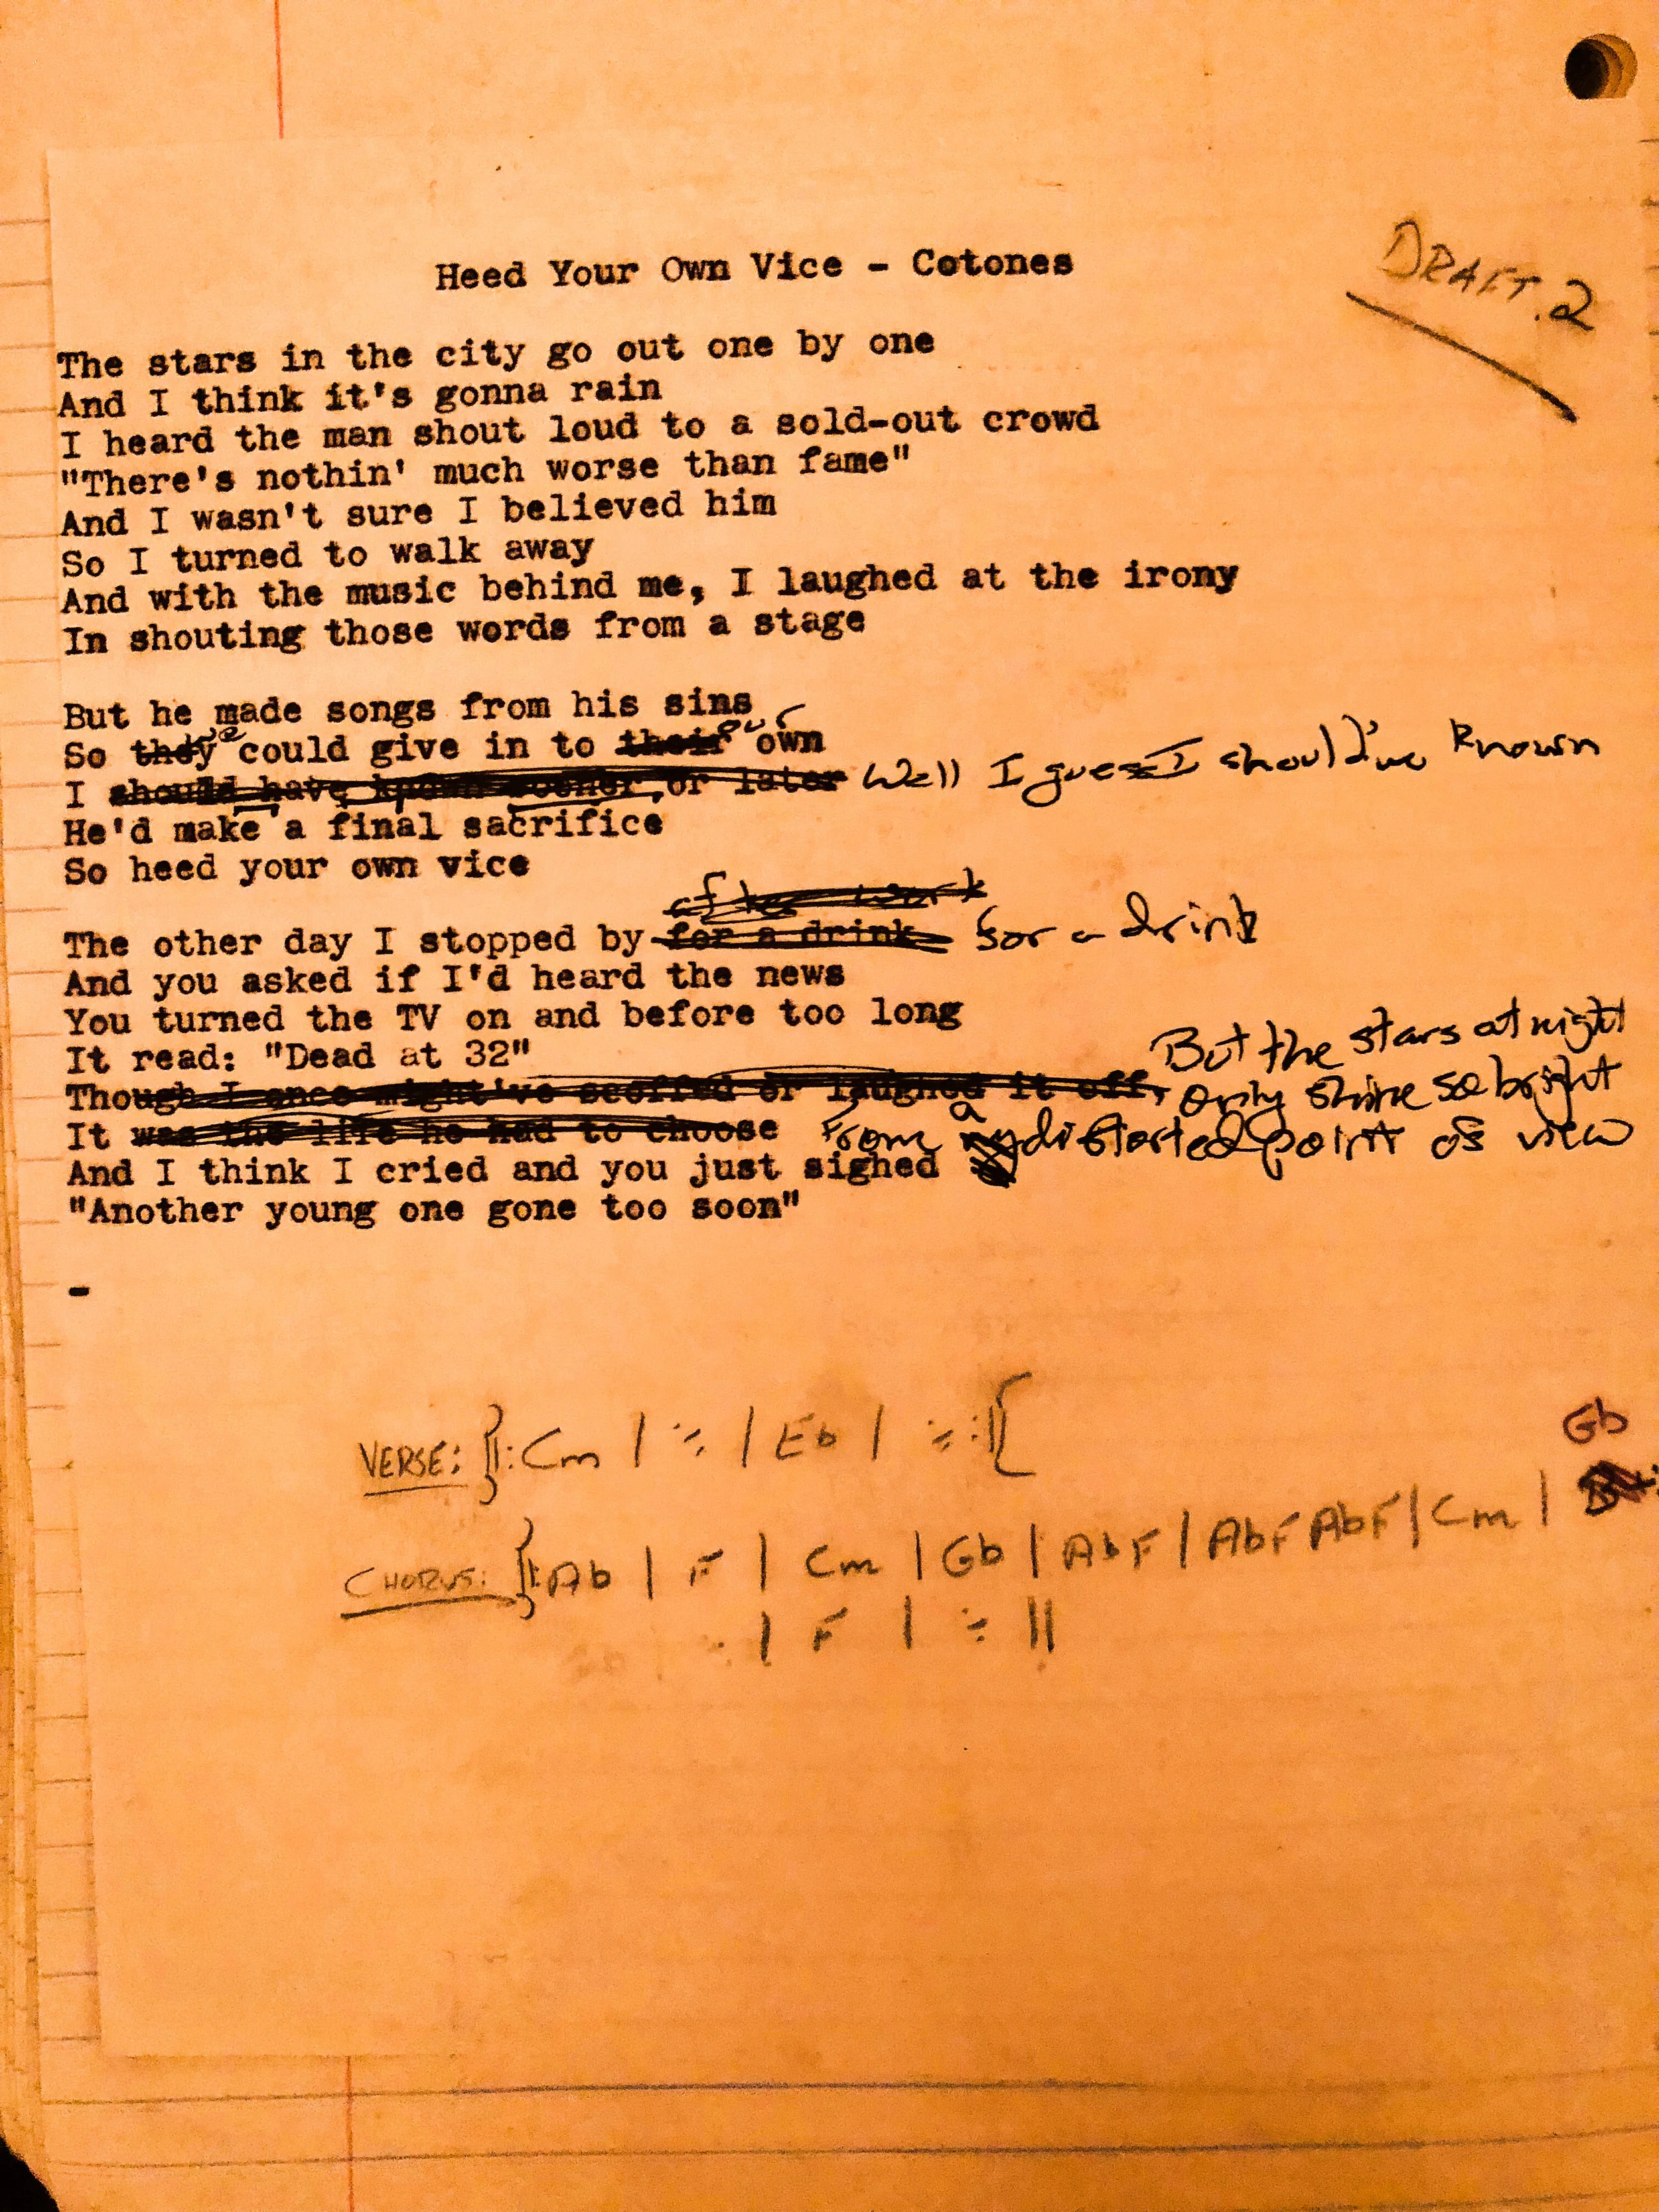 Heed Your Own Vice - Cotones
DRAFT.2
The stars in the city go out one by one
And I think it's gonna rain
I heard the man shout loud to a sold-out crowd
"There's nothin' much worse than fame"
And I wasn't sure I believed him
So I turned to walk away
And with the music behind me, I laughed at the irony
In shouting those words from a stage
But he made songs from his sins
So they we could give in to their our own
I should have known sooner or later Well I guess I should've known
He'd make a final sacrifice
So heed your own vice
after work
The other day I stopped by for a drink for a drink
And you asked if I'd heard the news
You turned the TV on and before too long
It read: "Dead at 32"
But the stars at night
Though I once might've scoffed or laughed it off, only shine so bright
It was the life he had to choose From a distorted point of view
And I think I cried and you just sighed
"Another young one gone too soon"
-
VERSE: ‖: Cm | ٪ | Eb | ٪ :‖
Gb
CHORUS: ‖: Ab | F | Cm | Gb | Ab F | Ab F Ab F | Cm |
| F | ٪ ‖